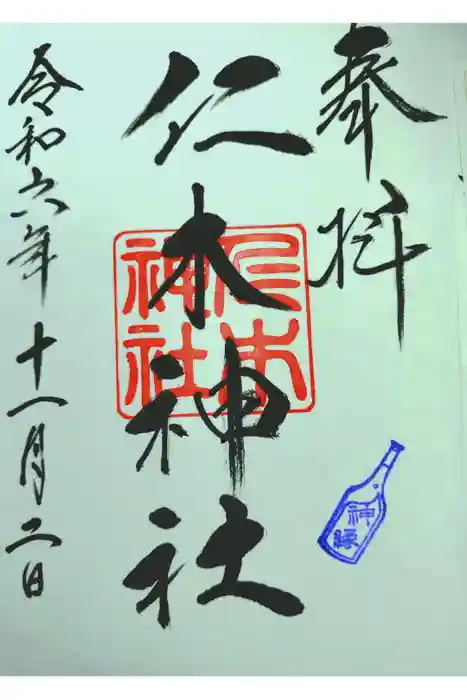 奉拝
仁木神社
仁木
神社
神縁
令和六年十一月二日